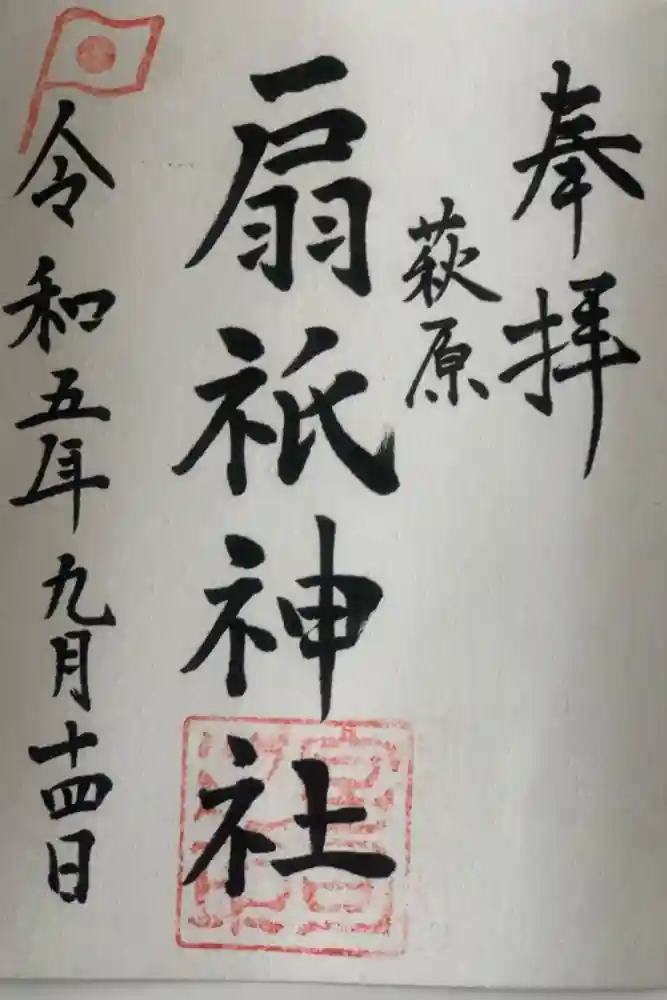 奉拝
萩原
扇祇神社
令和五年九月十四日